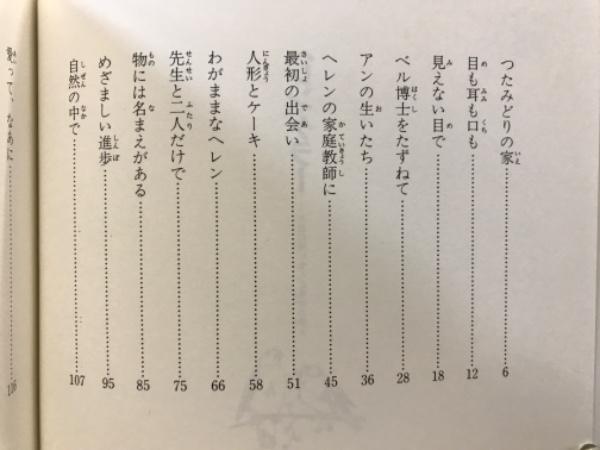 つたみどりの家……6
目も耳も口も……12
見えない目で……18
ベル博士をたずねて……28
アンの生いたち……36
ヘレンの家庭教師に……45
最初の出会い……51
人形とケーキ……58
わがままなヘレン……66
先生と二人だけで……75
物には名まえがある……85
めざましい進歩……95
自然の中で……107
愛って、なあに……116